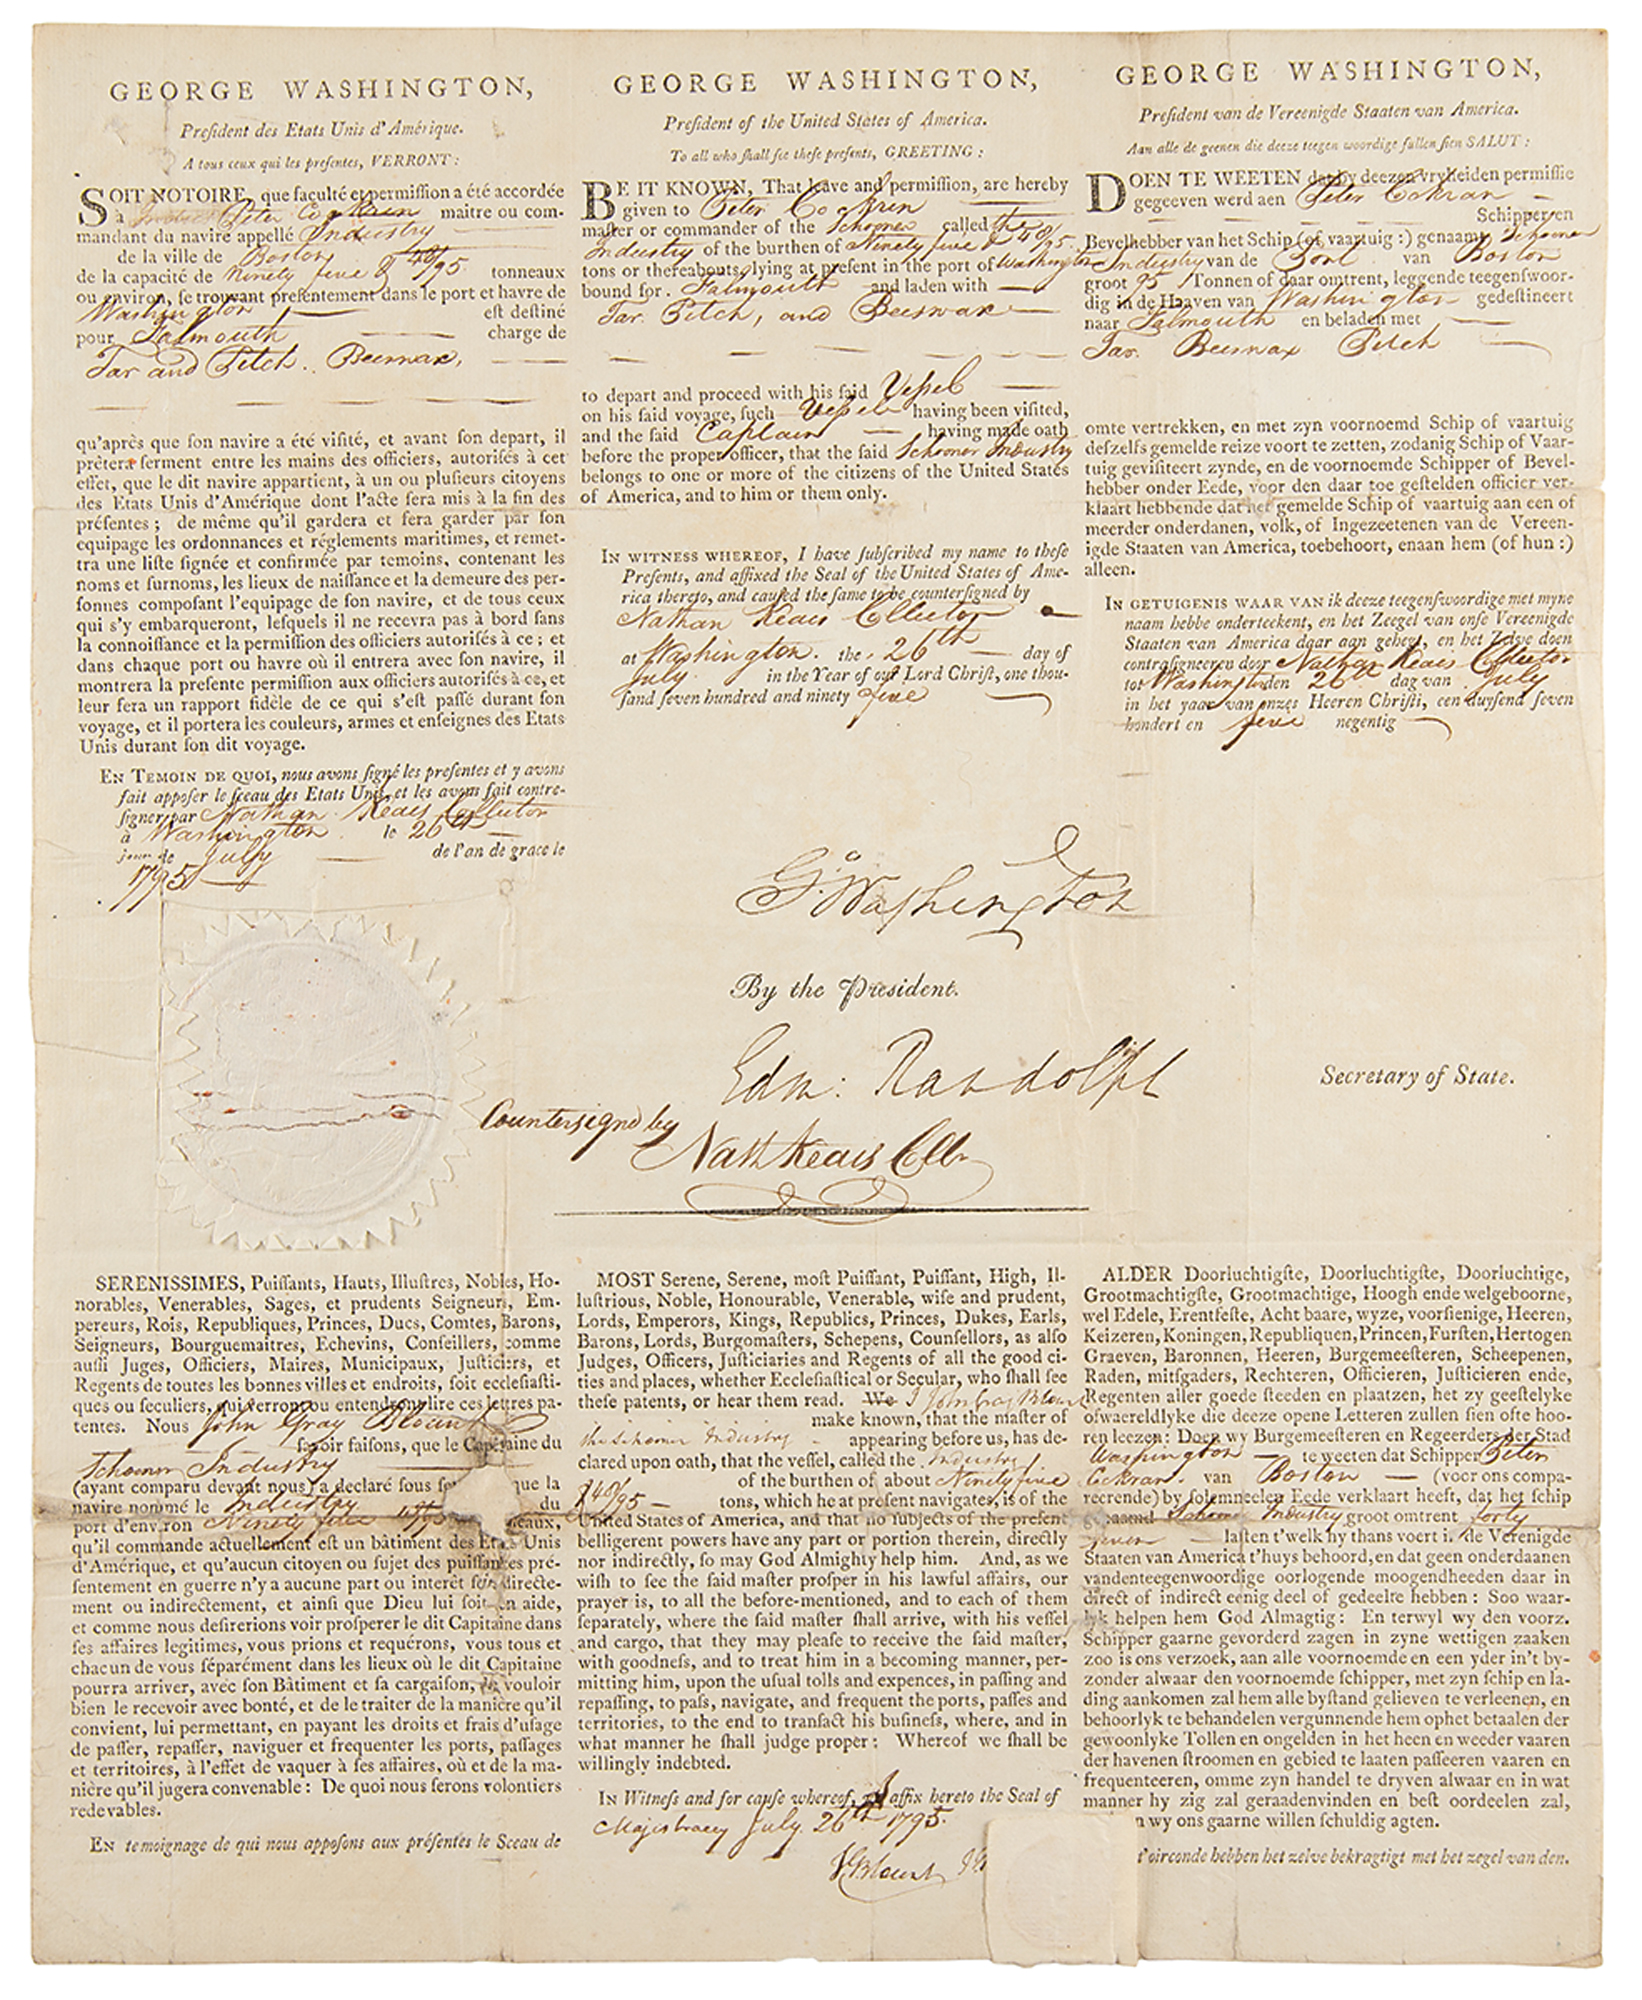 GEORGE WASHINGTON,
President des Etats Unis d'Amérique.
A tous ceux qui les presentes, VERRONT:
SOIT NOTOIRE, que faculté et permission a été accordée
à Peter Cockrin maitre ou com-
mandant du navire appellé Industry
de la ville de Boston
de la capacité de Ninety five & 48/95 tonneaux
ou environ, se trouvant presentement dans le port et havre de
Washington est destiné
pour Falmouth charge de
Tar and Pitch. Beeswax,
qu'après que son navire a été visité, et avant son depart, il
prêtera serment entre les mains des officiers, autorisés à cet
effet, que le dit navire appartient, à un ou plusieurs citoyens
des Etats Unis d'Amérique dont l'acte sera mis à la fin des
présentes; de même qu'il gardera et fera garder par son
equipage les ordonnances et réglements maritimes, et remet-
tra une liste signée et confirmée par temoins, contenant les
noms et surnoms, les lieux de naissance et la demeure des per-
sonnes composant l'equipage de son navire, et de tous ceux
qui s'y embarqueront, lesquels il ne recevra pas à bord sans
la connoissance et la permission des officiers autorisés à ce; et
dans chaque port ou havre où il entrera avec son navire, il
montrera la presente permission aux officiers autorisés à ce, et
leur fera un rapport fidèle de ce qui s'est passé durant son
voyage, et il portera les couleurs, armes et enseignes des Etats
Unis durant son dit voyage.
EN TEMOIN DE QUOI, nous avons signé les presentes et y avons
fait apposer le sceau des Etats Unis, et les avons fait contre-
signer par Nathan Keais Collector
à Washington le 26th
jour de July de l'an de grace le
1795
GEORGE WASHINGTON,
President of the United States of America.
To all who shall see these presents, GREETING:
BE IT KNOWN, That leave and permission, are hereby
given to Peter Cockrin
master or commander of the Schooner called the
Industry of the burthen of Ninety five & 48/95
tons or thereabouts, lying at present in the port of Washington
bound for Falmouth and laden with
Tar. Pitch, and Beeswax
to depart and proceed with his said Vessel
on his said voyage, such Vessel having been visited,
and the said Captain having made oath
before the proper officer, that the said Schooner Industry
belongs to one or more of the citizens of the United States
of America, and to him or them only.
IN WITNESS WHEREOF, I have subscribed my name to these
Presents, and affixed the Seal of the United States of Ame-
rica thereto, and caused the same to be countersigned by
Nathan Keais Collector
at Washington. the 26th day of
July in the Year of our Lord Christ, one thou-
sand seven hundred and ninety five
GEORGE WASHINGTON,
President van de Vereenigde Staaten van America.
Aan alle de geenen die deeze teegen woordige sullen sien SALUT:
DOEN TE WEETEN dat by deezen vryheiden permissie
gegeeven werd aen Peter Cokran
Schipper en
Bevelhebber van het Schip (of vaartuig:) genaamt Schooner
Industry van de Port van Boston
groot 95 Tonnen of daar omtrent, leggende teegenswoor-
dig in de Haaven van Washington gedestineert
naar Falmouth en beladen met
Tar. Beeswax Pitch
omte vertrekken, en met zyn voornoemd Schip of vaartuig
desselfs gemelde reize voort te zetten, zodanig Schip of Vaar-
tuig gevisiteert zynde, en de voornoemde Schipper of Bevel-
hebber onder Eede, voor den daar toe gestelden officier ver-
klaart hebbende dat het gemelde Schip of vaartuig aan een of
meerder onderdanen, volk, of Ingezeetenen van de Vereen-
igde Staaten van America, toebehoort, enaan hem (of hun:)
alleen.
IN GETUIGENIS WAAR VAN ik deeze teegenswoordige met myne
naam hebbe onderteekent, en het Zeegel van onse Vereenigde
Staaten van America daar aan gehegt, en het Zelve doen
contrasigneeren door Nathan Keais Collector
tot Washington den 26th dag van July
in het yaar van onzes Heeren Christi, een duysend seven
hondert en five negentig
Go: Washington
By the President.
Edm: Randolph
Secretary of State.
Countersigned by
Nath Keais Collr
SERENISSIMES, Puissants, Hauts, Illustres, Nobles, Ho-
norables, Venerables, Sages, et prudents Seigneurs, Em-
pereurs, Rois, Republiques, Princes, Ducs, Comtes, Barons,
Seigneurs, Bourguemaitres, Echevins, Conseillers, comme
aussi Juges, Officiers, Maires, Municipaux, Justiciers, et
Regents de toutes les bonnes villes et endroits, soit ecclesiasti-
ques ou seculiers, qui verront ou entendront lire ces lettres pa-
tentes. Nous John Gray Blount
savoir faisons, que le Capitaine du
Schooner Industry
(ayant comparu devant nous) a declaré sous que la
navire nommé le Industry du
port d'environ Ninety five
qu'il commande actuellement est un bâtiment des Etats Unis
d'Amérique, et qu'aucun citoyen ou sujet des puissantes pré-
sentement en guerre n'y a aucune part ou interêt directe-
ment ou indirectement, et ainsi que Dieu lui soit en aide,
et comme nous desirerions voir prosperer le dit Capitaine dans
ses affaires legitimes, vous prions et requérons, vous tous et
chacun de vous séparément dans les lieux où le dit Capitaine
pourra arriver, avec son Bâtiment et sa cargaison, de vouloir
bien le recevoir avec bonté, et de le traiter de la manière qu'il
convient, lui permettant, en payant les droits et frais d'usage
de passer, repasser, naviguer et frequenter les ports, passages
et territoires, à l'effet de vaquer à ses affaires, où et de la ma-
nière qu'il jugera convenable: De quoi nous serons volontiers
redevables.
EN temoignage de qui nous apposons aux présentes le Sceau de
MOST Serene, Serene, most Puissant, Puissant, High, Il-
lustrious, Noble, Honourable, Venerable, wise and prudent,
Lords, Emperors, Kings, Republics, Princes, Dukes, Earls,
Barons, Lords, Burgomasters, Schepens, Counsellors, as also
Judges, Officers, Justiciaries and Regents of all the good ci-
ties and places, whether Ecclesiastical or Secular, who shall see
these patents, or hear them read. We I John Gray Blount
make known, that the master of
the schooner Industry appearing before us, has de-
clared upon oath, that the vessel, called the Industry
of the burthen of about Ninety five
& 48/95 tons, which he at present navigates, is of the
United States of America, and that no subjects of the present
belligerent powers have any part or portion therein, directly
nor indirectly, so may God Almighty help him. And, as we
wish to see the said master prosper in his lawful affairs, our
prayer is, to all the before-mentioned, and to each of them
separately, where the said master shall arrive, with his vessel
and cargo, that they may please to receive the said master,
with goodness, and to treat him in a becoming manner, per-
mitting him, upon the usual tolls and expences, in passing and
repassing, to pass, navigate, and frequent the ports, passes and
territories, to the end to transact his business, where, and in
what manner he shall judge proper: Whereof we shall be
willingly indebted.
IN Witness and for cause whereof, I affix hereto the Seal of
Majestracey July 26th 1795.
JGBlount
ALDER Doorluchtigste, Doorluchtigste, Doorluchtige,
Grootmachtigste, Grootmachtige, Hoogh ende welgeboorne,
wel Edele, Erentfeste, Acht baare, wyze, voorsienige, Heeren,
Keizeren, Koningen, Republiquen, Princen, Fursten, Hertogen
Graeven, Baronnen, Heeren, Burgemeesteren, Scheepenen,
Raden, mitsgaders, Rechteren, Officieren, Justicieren ende,
Regenten aller goede steeden en plaatzen, het zy geestelyke
ofwaereldlyke die deeze opene Letteren zullen sien ofte hoo-
ren leezen: Doen wy Burgemeesteren en Regeerders der Stad
Washington te weeten dat Schipper Peter
Cockran. van Boston (voor ons compa-
reerende) by solemneelen Eede verklaart heeft, dat het schip
genaamd Schooner Industry groot omtrent forty
seven lasten t'welk hy thans voert is de Verenigde
Staaten van America t'huys behoord, en dat geen onderdaanen
vandenteegenwoordige oorlogende moogendheeden daar in
direct of indirect eenig deel of gedeelte hebben: Soo waar-
lyk helpen hem God Almagtig: En terwyl wy den voorz.
Schipper gaarne gevorderd zagen in zyne wettigen zaaken
zoo is ons verzoek, aan alle voornoemde en een yder in't by-
zonder alwaar den voornoemde schipper, met zyn schip en la-
ding aankomen zal hem alle bystand gelieven te verleenen, en
behoorlyk te behandelen vergunnende hem ophet betaalen der
gewoonlyke Tollen en ongelden in het heen en weeder vaaren
der havenen stroomen en gebied te laaten passeeren vaaren en
frequenteeren, omme zyn handel te dryven alwaar en in wat
manner hy zig zal geraadenvinden en best oordeelen zal,
wy ons gaarne willen schuldig agten.
t'oirconde hebben het zelve bekragtigt met het zegel van den.